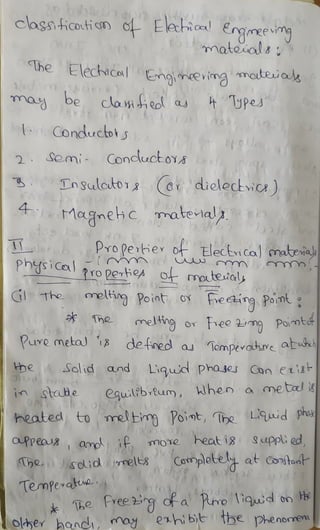 classification of Electrical Engineering
materials:
The Electrical Engineering materials
may be classified as 4 Types
1. Conductors
2. Semi-Conductors
3. Insulators (or dielectrics)
4. Magnetic materials.
II Properties of Electrical materials
physical properties of materials
(i) The melting point or Freezing Point:
* The melting or Freezing Point of
Pure metal is defined as Temperature at which
the Solid and Liquid phases Can exist
in stable equilibrium, When a metal is
heated to melting Point, The Liquid phase
appears, and if more heat is supplied,
The solid melts Completely at constant
Temperature.
* The Freezing of a Pure liquid on the
other hand, may exhibit the phenomeno